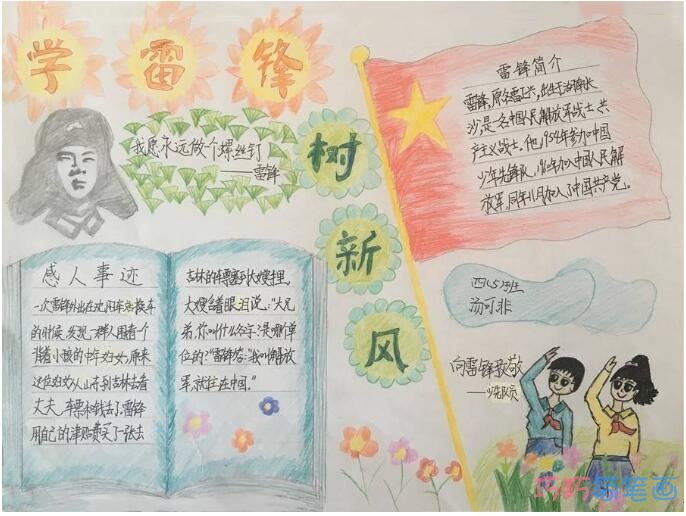 学雷锋
树新风
我愿永远做个螺丝钉
——雷锋
雷锋简介
雷锋,原名雷正兴,出生于湖南长
沙,是一名中国人民解放军战士、共
产主义战士。他,1954年参加中国
少年先锋队,1960年加入中国人民解
放军,同年11月加入了中国共产党。
感人事迹
一次雷锋外出在沈阳车站换车
的时候,发现一群人围看一个
背着小孩的中年妇女,原来
这位妇女从山东到吉林去看
丈夫,车票不钱丢了。雷锋
用自己的津贴费买了一张去
吉林的车票塞到大嫂手里,
大嫂含着眼泪说:“大兄
弟,你叫什么名字?是哪个单
位的?”雷锋答:“我叫解放
军,就住在中国。”
四(5)班
汤可非
向雷锋致敬
——少先队员
巧巧简笔画